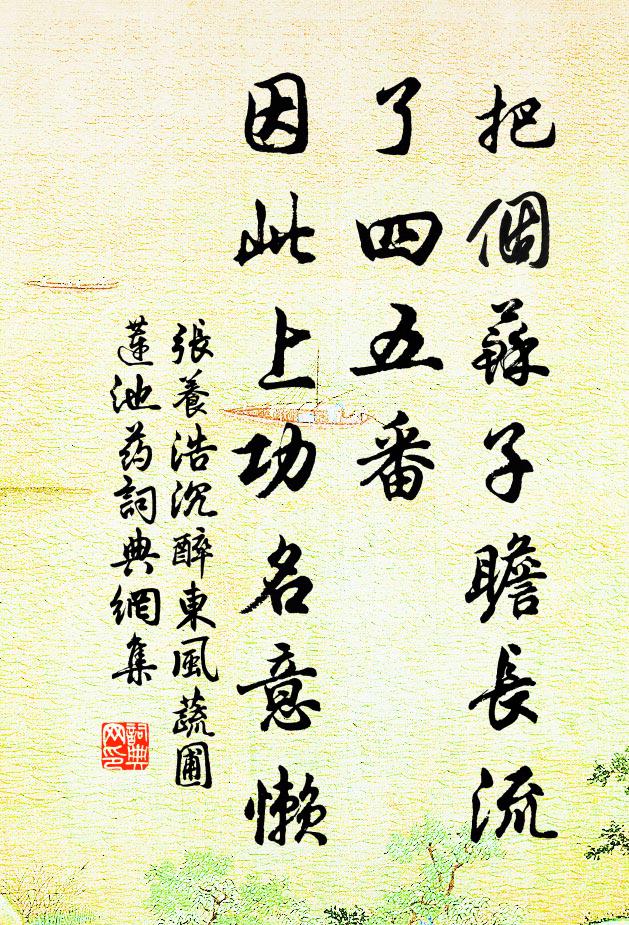 把個蘇子瞻長流
了四五番
因此上功名意懶
張養浩沉醉東風蔬圃
蓮池药詞典網集
詞典
网印